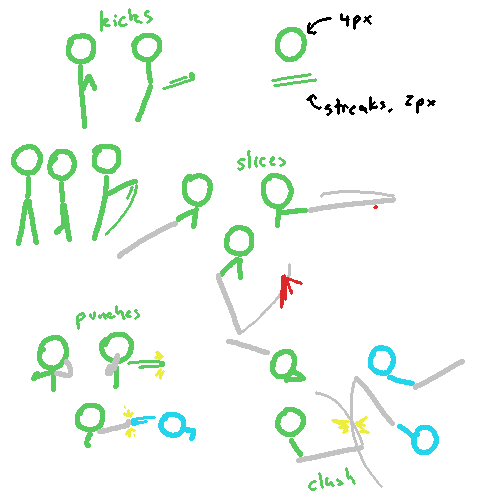 kicks
4px
streaks, 2px
slices
punches
clash